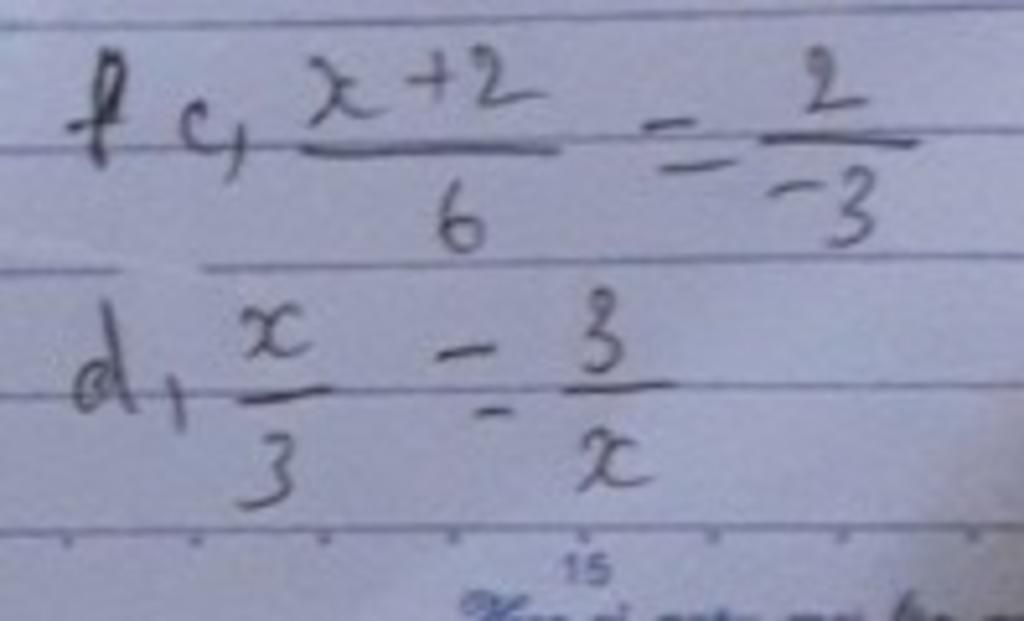 c, x+2/6 = 2/-3
d, x/3 = 3/x
15